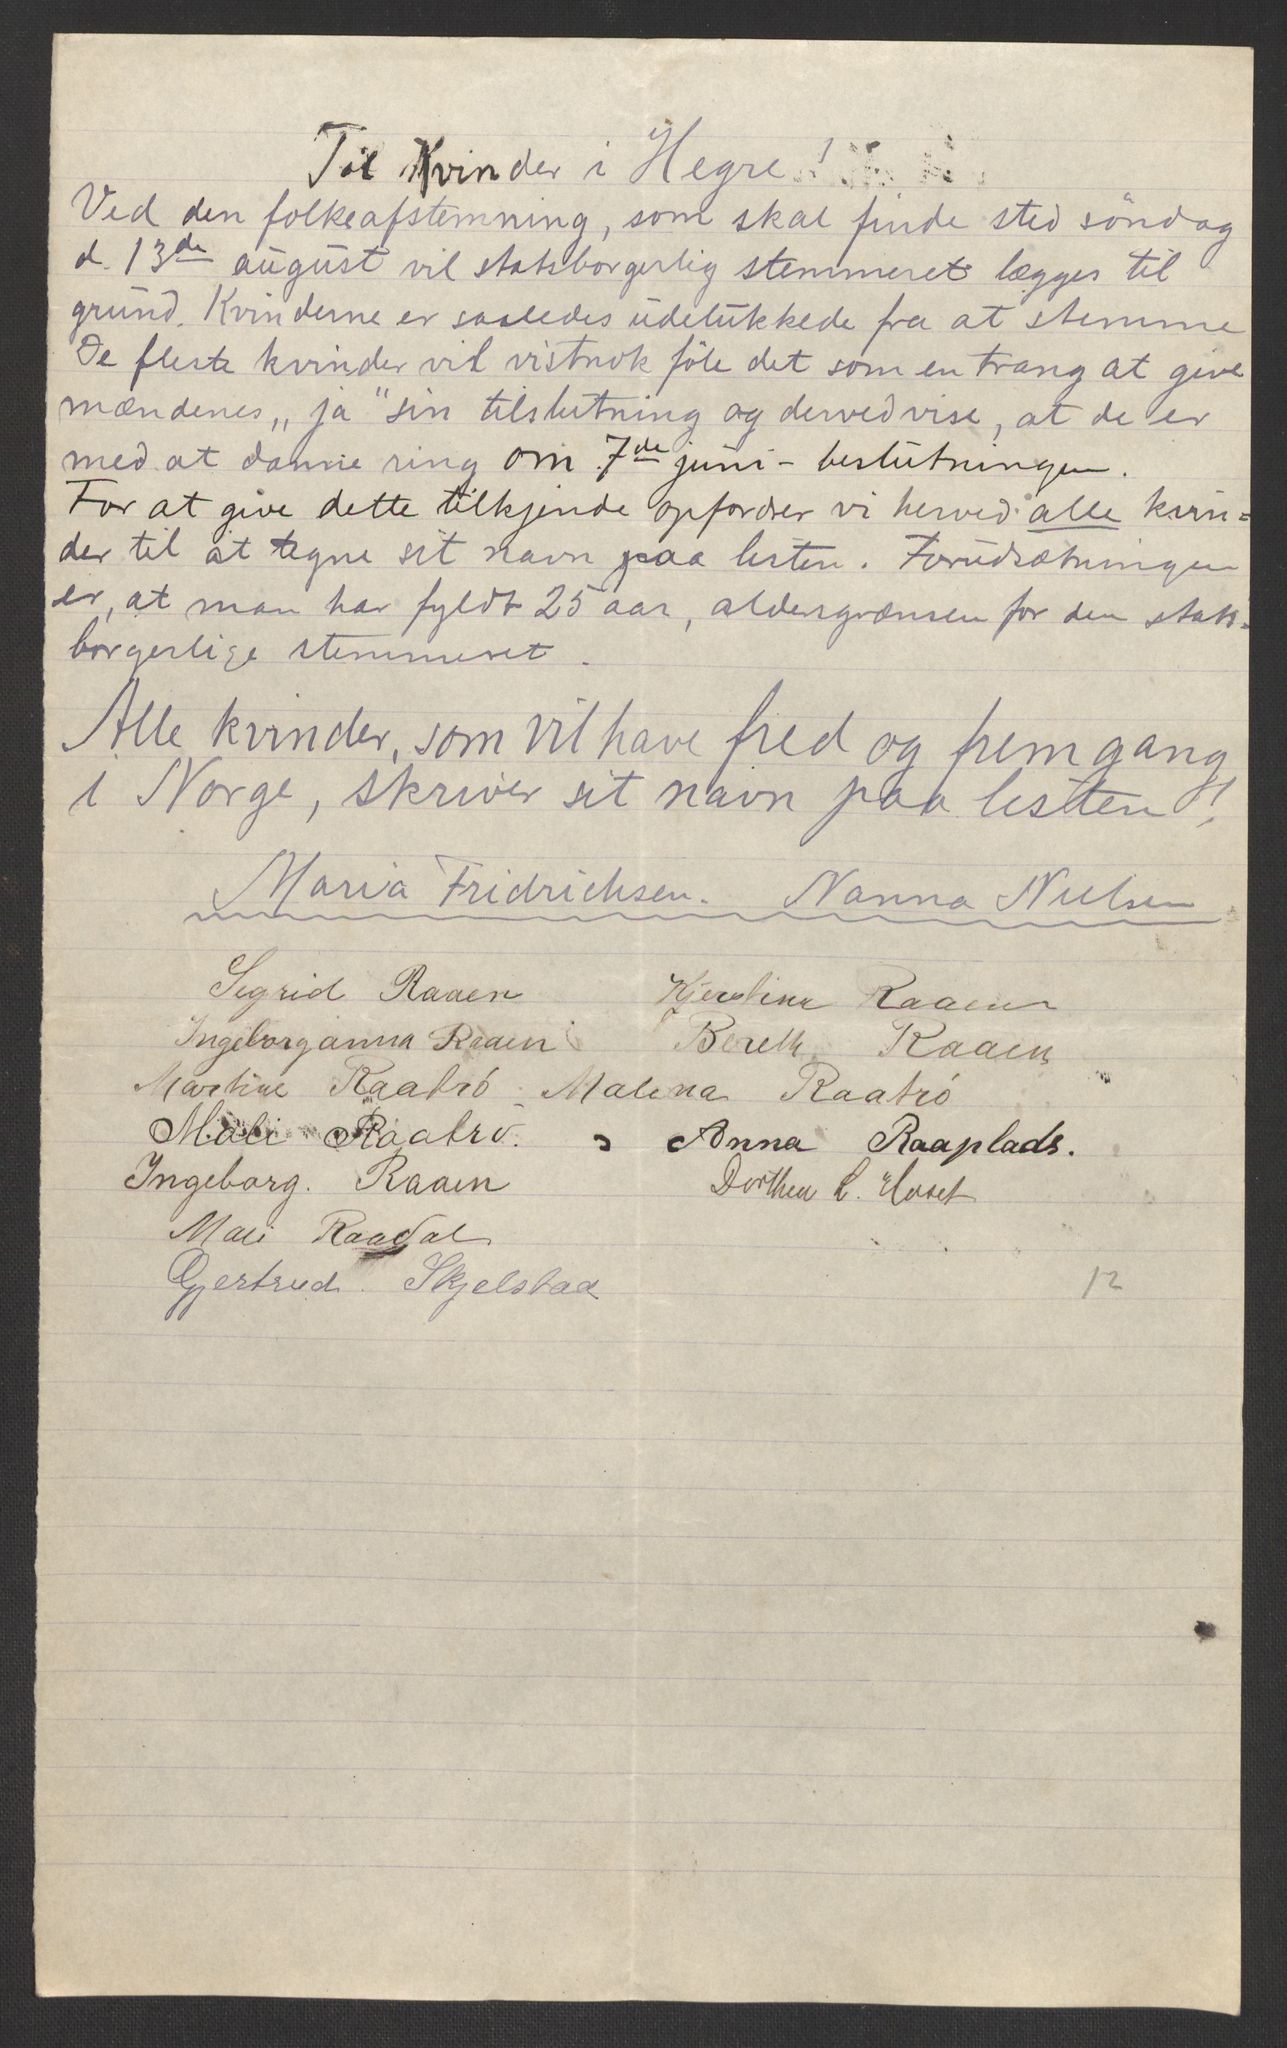 Til Kvinder i Hegre!
Ved den folkeafstemning, som skal finde sted söndag
d. 13de august vil statsborgerlig stemmeret lægges til
grund. Kvinderne er saaledes udelukkede fra at stemme
De fleste kvinder vil vistnok föle det som en trang at give
mændenes „ja" sin tilslutning og derved vise, at de er
med at danne ring om 7de juni - beslutningen.
For at give dette tilkjende opfordrer vi herved alle kvin=
der til at tegne sit navn paa listen. Forudsætningen
er, at man har fyldt 25 aar, aldersgrænsen for den stats=
borgerlige stemmeret.
Alle kvinder, som vil have fred og fremgang
i Norge, skriver sit navn paa listen!
Maria Fridrichsen. Nanna Nielsen
Sigrid Raaen Kjerstine Raaen
Ingeborganna Raaen Bereth Raaen
Martine Raabró Malena Raabró
Mali Raabro. Anna Raaplads.
Ingeborg. Raaen Dorthea L. Hoset
Mali Raadal
Gjertrud. Skjelstad
12